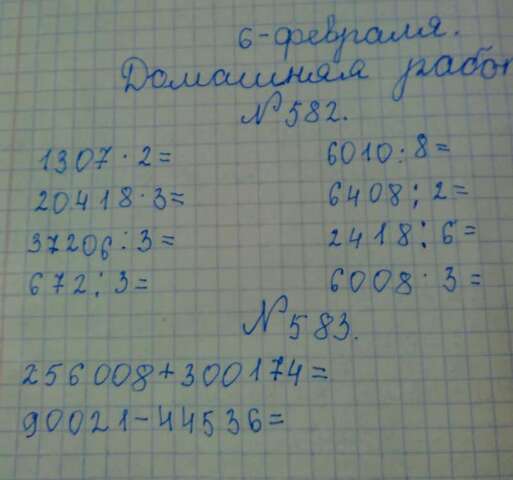 6-февраля.
Домашняя рабо
№ 582.
1307 · 2 = 6010 : 8 =
20418 · 3 = 6408 : 2 =
37206 : 3 = 2418 : 6 =
672 : 3 = 6008 · 3 =
№ 583.
256008 + 300174 =
90021 - 44536 =